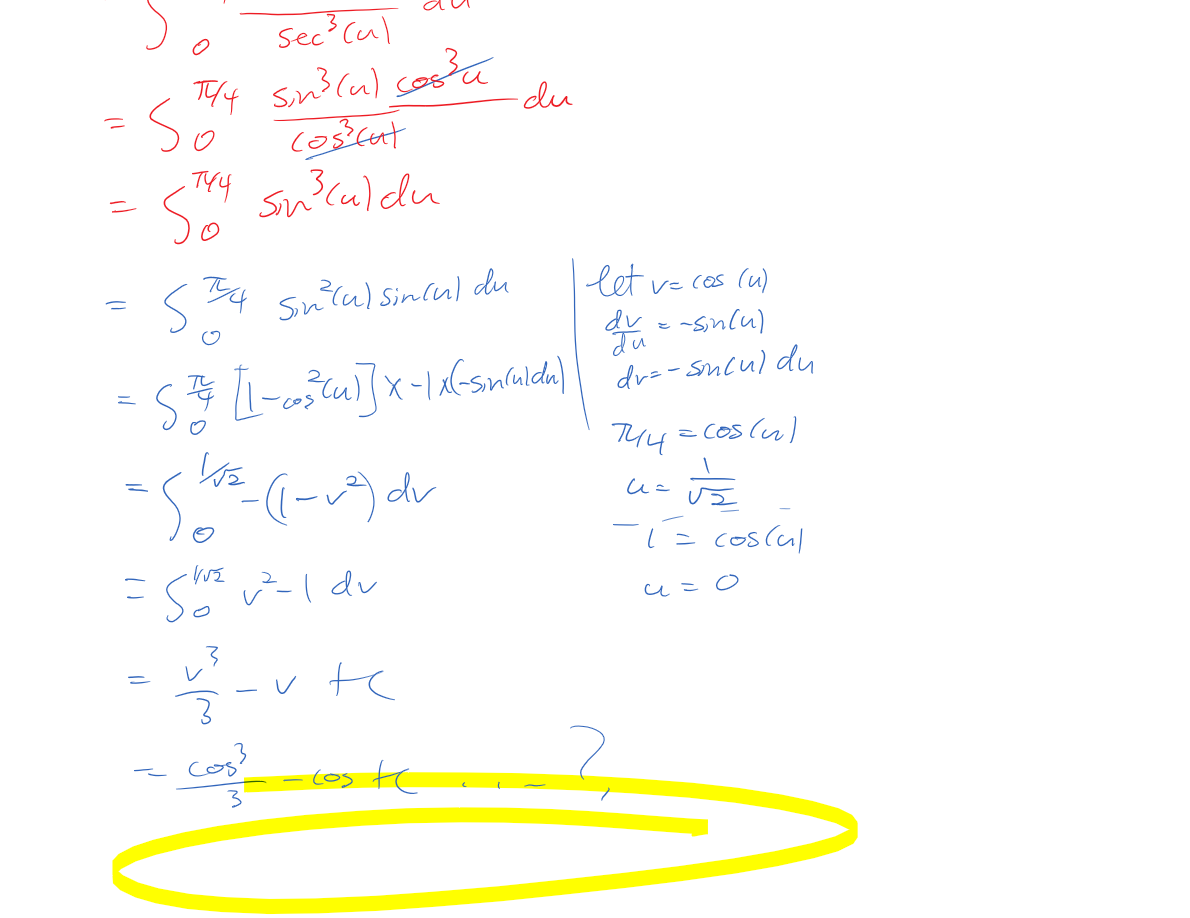 ∫ 0 / sec³(u) du
= ∫₀^π/4 sin³(u) cos³u / cos³(u) du
= ∫₀^π/4 sin³(u) du
= ∫₀^π/4 sin²(u) sin(u) du
= ∫₀^π/4 [1-cos²(u)] x -1 x (-sin(u)du)
= ∫₀^1/√2 -(1-v²) dv
= ∫₀^1/√2 v²-1 dv
= v³/3 - v + c
= cos³/3 - cos + c ... - ?,
let v = cos (u)
dv/du = -sin(u)
dv = -sin(u) du
π/4 = cos(u)
u = 1/√2
1 = cos(u)
u = 0